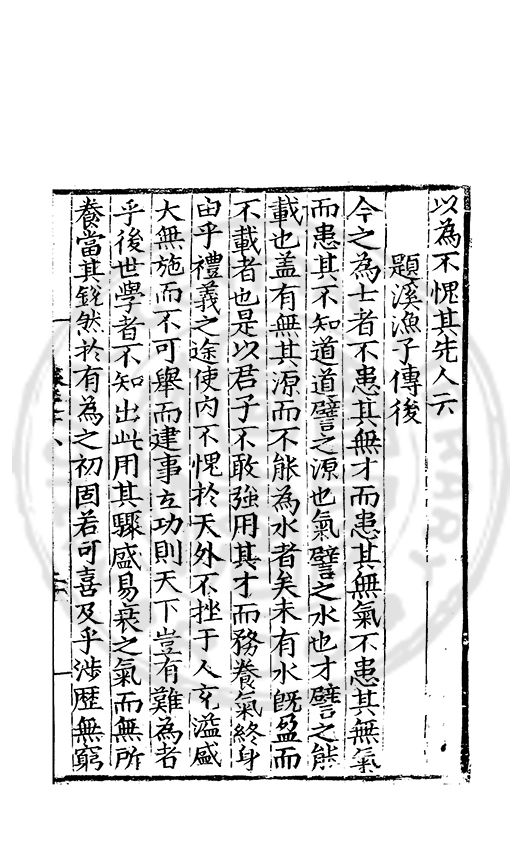 以為不愧其先人云
題溪漁子傳後
今之為士者不患其無才而患其無氣不患其無氣
而患其不知道道譬之源也氣譬之水也才譬之能
載也盖有無其源而不能為水者矣未有水既盈而
不載者也是以君子不敢強用其才而務養氣終身
由乎禮義之途使内不愧於天外不挫于人充溢盛
大無施而不可舉而建事立功則天下豈有難為者
乎後世學者不知出此用其驟盛易衰之氣而無所
養當其銳然於有為之初固若可喜及乎涉歷無窮